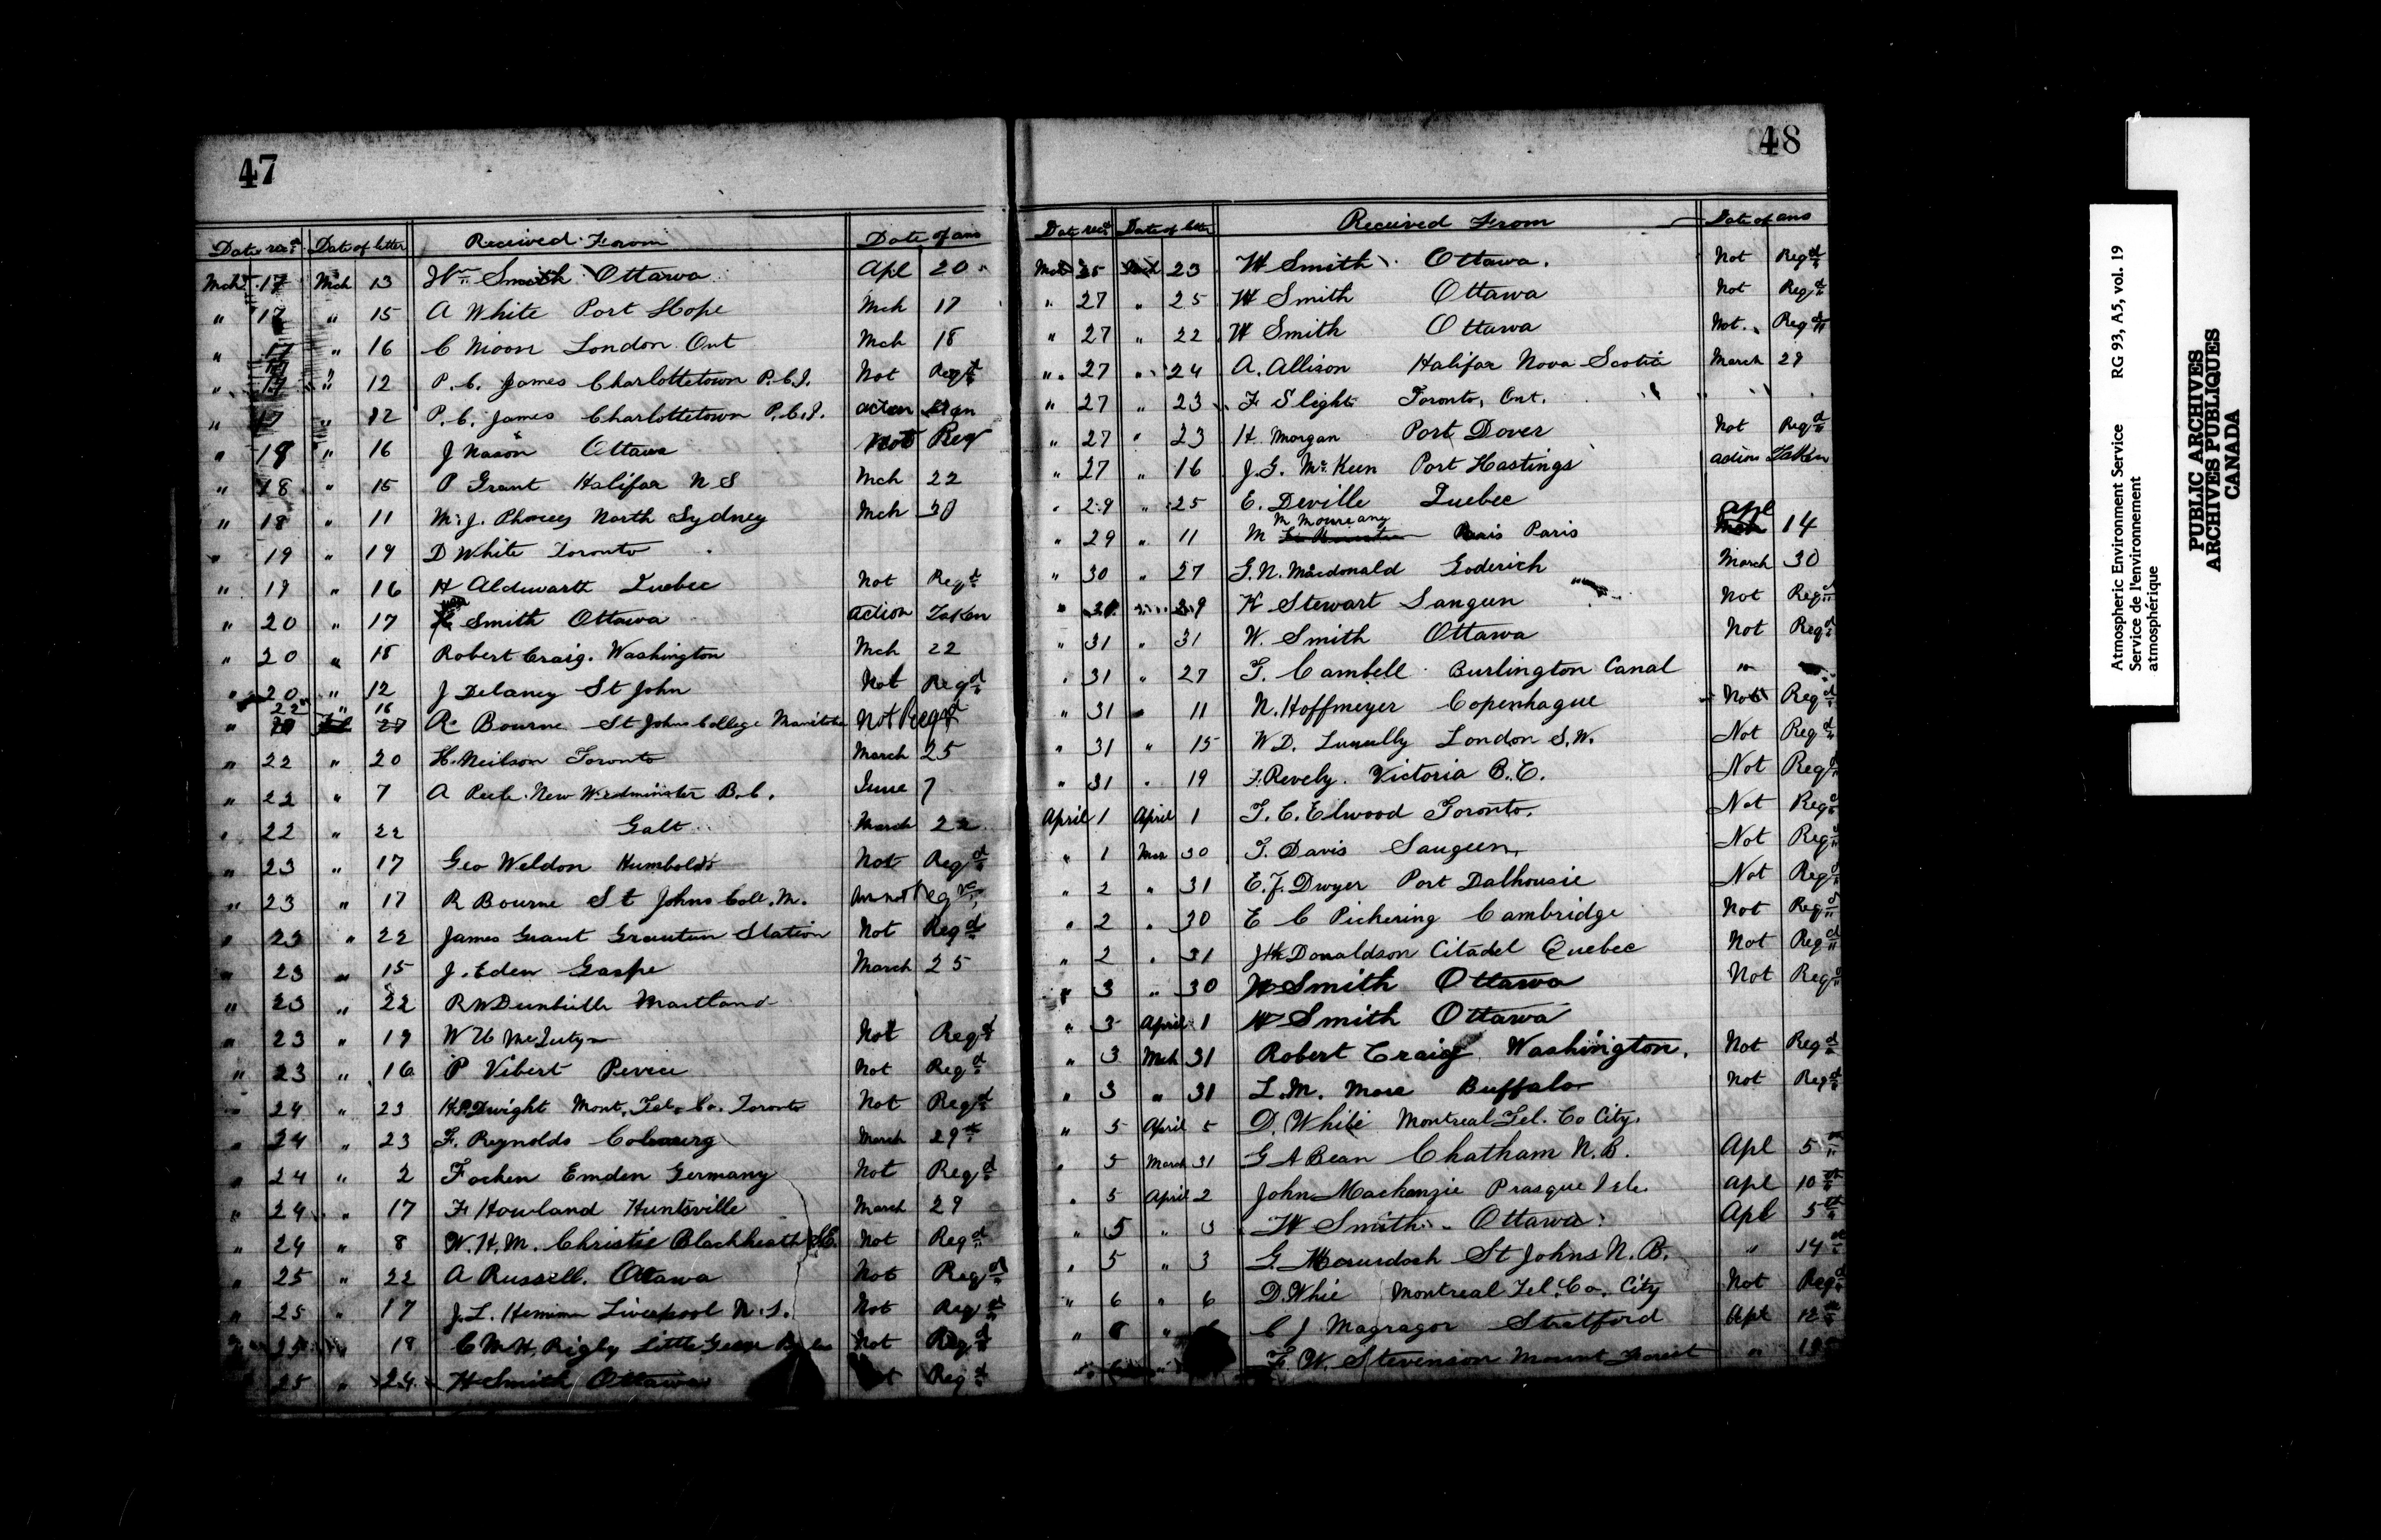 47
Date recd Date of letter Received From Date of ans
Mch 17 Mch 13 Wm Smith Ottawa Apl 20
" 17 " 15 A White Port Hope Mch 17
" 17 " 16 C Moon London Ont Mch 18
" 17 " 12 P. C. James Charlottetown P.E.I. Not Reqd
" 17 " 12 P. C. James Charlottetown P.E.I. action
" 18 " 16 J Nason Ottawa Not Req
" 18 " 15 P Grant Halifax N S Mch 22
" 18 " 11 North Sydney Mch 30
" 19 " 19 D White Toronto
" 19 " 16 H Quebec Not Reqd
" 20 " 17 Smith Ottawa action Taken
" 20 " 18 Robert Craig. Washington Mch 22
" 20 " 12 J Delaney St John Not Reqd
" 22 " 16 Bourne St Johns College Manitoba Not Reqd
" 22 " 20 H. Neilson Toronto March 25
" 22 " 7 A New Westminster B.C. June 7
" 22 " 22 Galt March 22
" 23 " 17 Geo Weldon Humboldt Not Reqd
" 23 " 17 R Bourne St Johns Coll. M.
" 23 " 22 James Grant Station Not Reqd
" 23 " 15 J. Eden Gaspe March 25
" 23 " 22 Maitland
" 23 " 19 Not Reqd
" 23 " 16 P Vibert Not Reqd
" 24 " 23 H.P. Dwight Mont. Tel. Co. Toronto Not Reqd
" 24 " 23 F. Reynolds March 29th
" 24 " 2 Focken Emden Germany Not Reqd
" 24 " 17 F Howland Huntsville March 29
" 24 " 8 W. H. M. Christie Blackheath S.E. Not Reqd
" 25 " 22 A Russell. Ottawa Not Reqd
" 25 " 17 Liverpool N.S. Not Reqd
" 25 " 18 Rigby Little Not Reqd
25 " 24 W Smith Ottawa Not Reqd
48
Date recd Date of letter Received From Date of ans
25 23 W Smith Ottawa. Not Reqd
" 27 " 25 W Smith Ottawa Not Reqd
" 27 " 22 W Smith Ottawa Not Reqd
" 27 " 24 A. Allison Halifax Nova Scotia March 29
" 27 " 23 F Slight Toronto, Ont. " "
" 27 " 23 H. Morgan Port Dover Not Reqd
" 27 " 16 J. G. McKeen Port Hastings action Taken
" 29 " 25 E. Deville Quebec
" 29 " 11 M Paris Apl 14
" 30 " 27 G. N. Macdonald Goderich March 30
" " 29 K Stewart Saugeen Not Reqd
" 31 " 31 W. Smith Ottawa Not Reqd
" 31 " 27 T. Cambell Burlington Canal " "
" 31 " 11 N. Hoffmeyer Copenhague Not Reqd
" 31 " 15 W D. London S.W. Not Reqd
" 31 " 19 F. Revely Victoria B.C. Not Reqd
April 1 April 1 T. C. Elwood Toronto. Not Reqd
" 1 Mar 30 T. Davis Saugeen Not Reqd
" 2 " 31 E. J. Dwyer Port Dalhousie Not Reqd
" 2 " 30 E C Pickering Cambridge Not Reqd
" 2 " 31 Donaldson Citadel Quebec Not Reqd
" 3 " 30 W Smith Ottawa Not Reqd
" 3 April 1 W Smith Ottawa
" 3 Mch 31 Robert Craig Washington. Not Reqd
" 3 " 31 L. M. More Buffalo Not Reqd
" 5 April 5 D. White Montreal Tel. Co City.
" 5 March 31 G A Bean Chatham N.B. Apl 5th
" 5 April 2 John Mackenzie Prasque Isle. Apl 10th
" 5 " 3 W Smith Ottawa Apl 5th
" 5 " 3 G. St Johns N.B. " 14th
" 6 " 6 D. Whie Montreal Tel. Co. City Not Reqd
" 6 " C J Magragor Stratford Apl 12th
" " F. W. Stevenson Mount Forest "
Atmospheric Environment Service RG 93, A5, vol. 19
Service de l'environnement
atmosphérique
PUBLIC ARCHIVES
ARCHIVES PUBLIQUES
CANADA